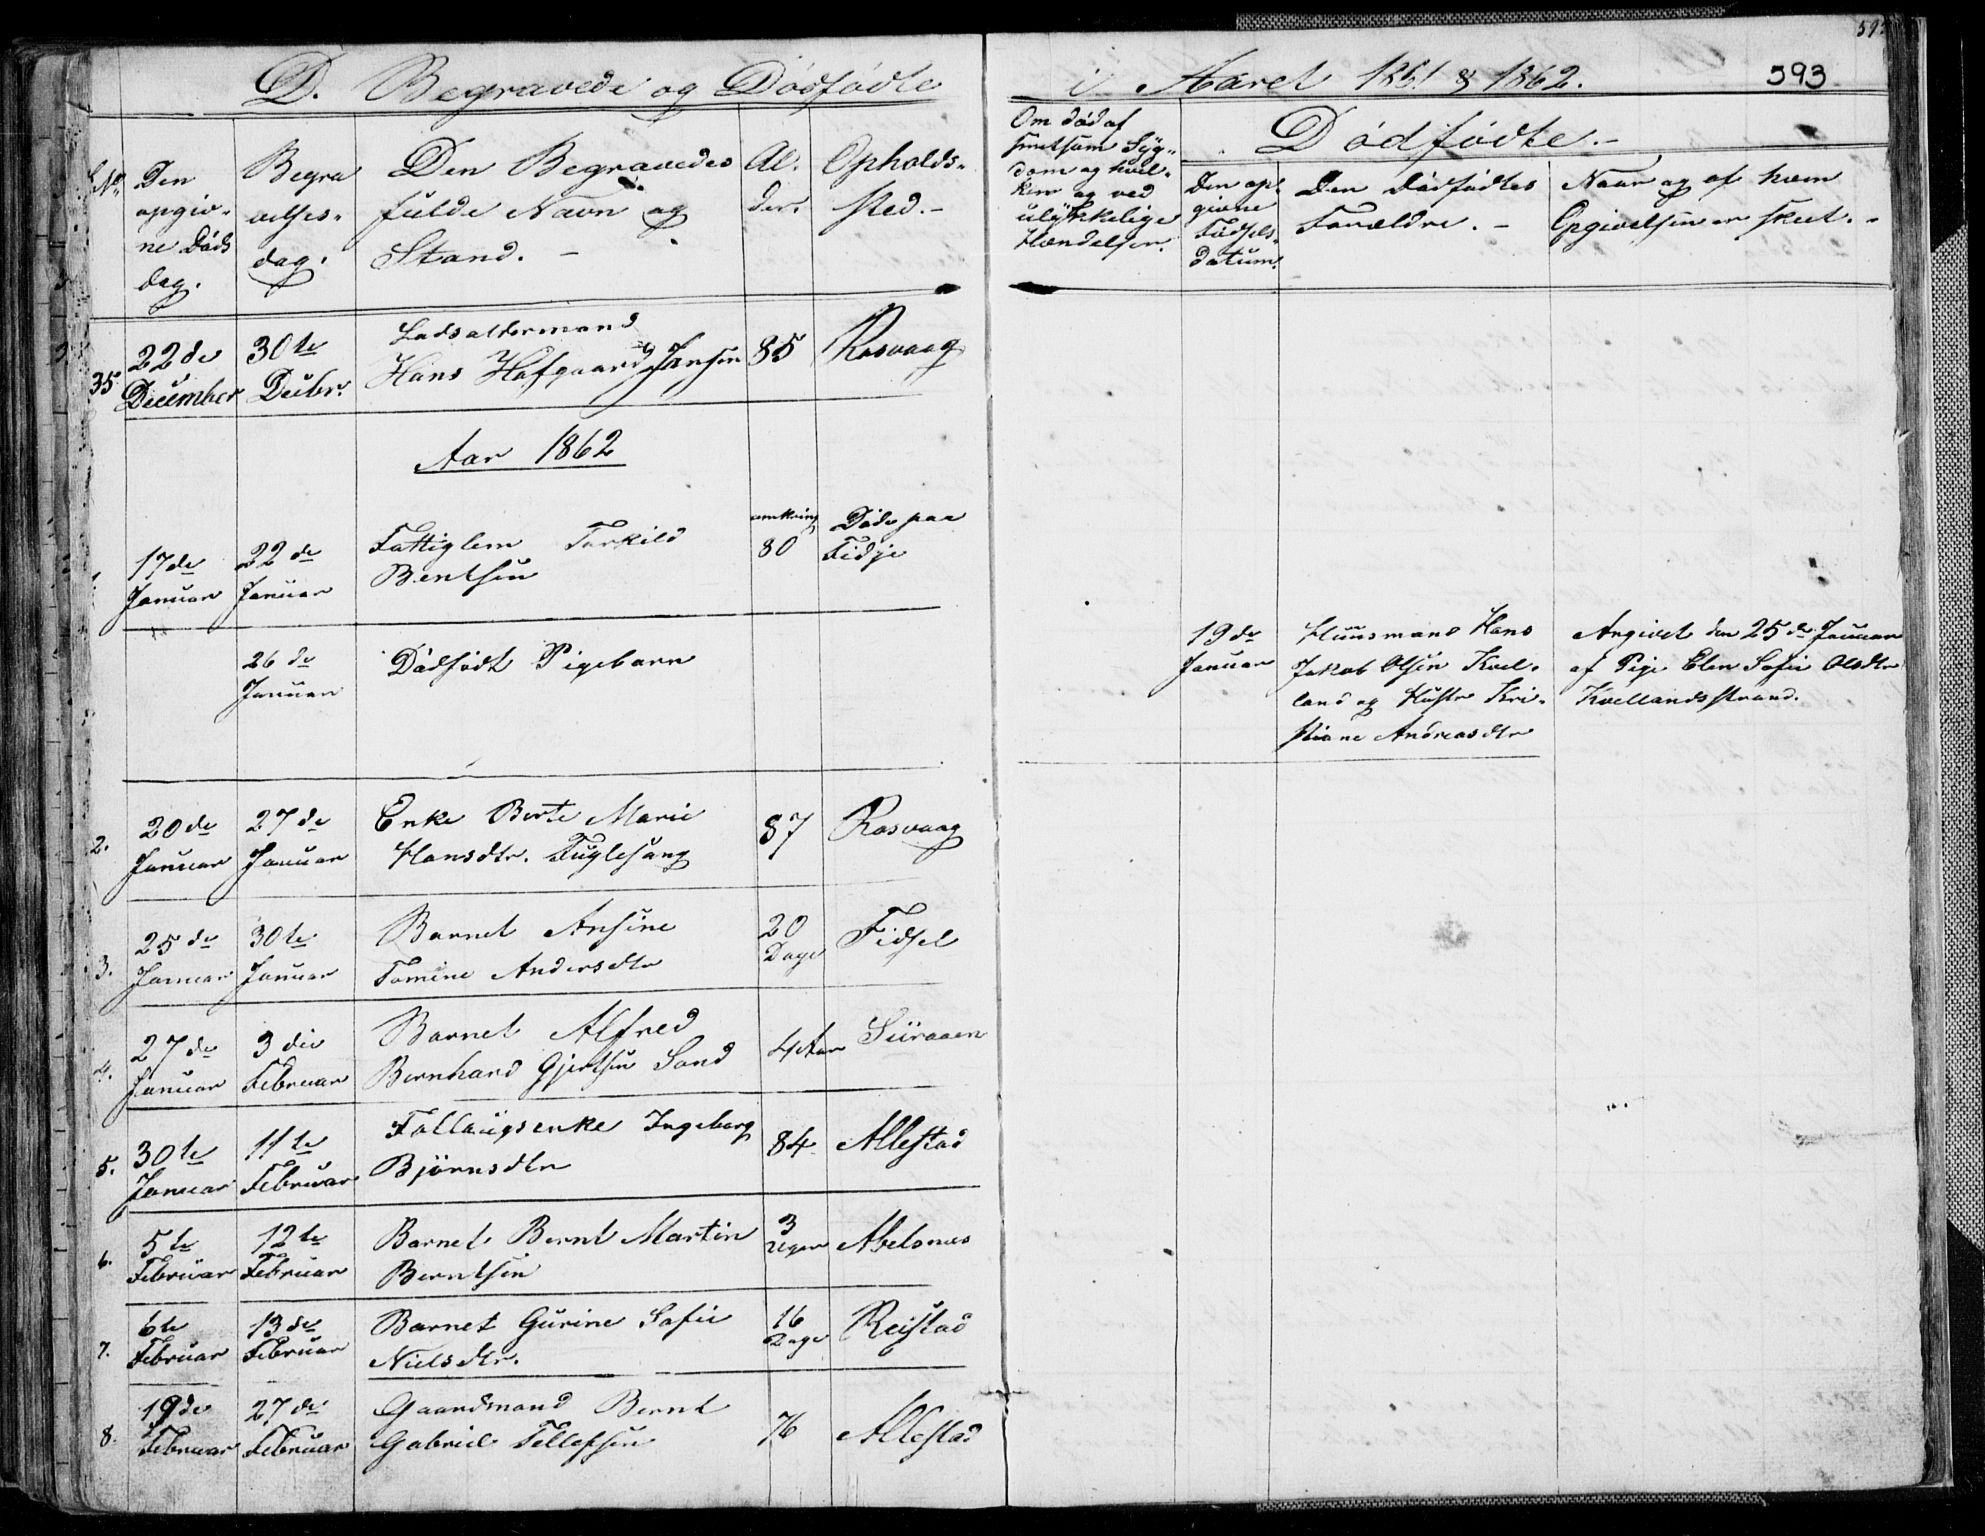 593
D. Begravede og Dødfødte
i Aaret 1861 & 1862.
No. Den opgiv-
ne Døds
dag.
Begra
velses-
dag.
Den Begravedes
fulde Navn og
Stand. -
Al-
der.
Opholds-
sted. -
Om død af
smitsom Syg-
dom og hvil-
ken og ved
ulykkelige
Hændelser.
Dødfødte. -
Den op-
givne
Fødsels-
datum.
Den Dødfødtes
Forældre. -
Naar og af hvem
Opgivelsen er skeet. -
35 22de December
30te Decbr.
Lodsoldermand
Hans Hafgaard Jansen
85
Rasvaag
Aar 1862
1. 17de Januar
22de Januar
Fattiglem Torkild
Bentsen
omkring
80
Døde paa
Fidje
26de Januar
Dødfødt Pigebarn
19de
Januar
Huusmand Hans
Jakob Olsen Kvel-
land og Hustr Kri-
stiane Andreasdtr
Angivet den 25de Januar
af Pige Elen Sofie Olsdtr
Kvellandsstrand.
2. 20de Januar
27de Januar
Enke Berte Marie
Hansdtr. Fuglesang
87
Rasvaag
3. 25de Januar
30te Januar
Barnet Ansine
Tomine Andersdtr
20
Dage
Fidsel
4. 27de Januar
3die Februar
Barnet Alfred
Bernhard Gjertsen Sand
4 Aar
Siiraaen
5. 30te Januar
11te Februar
Follaugsenke Ingeborg
Bjørnsdtr
84
Allestad
6. 5te Februar
12te Februar
Barnet Bernt Martin
Berntsen
3
Uger
Abelsnæs
7. 6te Februar
13de Februar
Barnet Gurine Sofie
Nielsdtr.
16
Dage
Reistad
8. 19de Februar
27de Februar
Gaardmand Bernt
Gabriel Tellefsen
76
Allestad